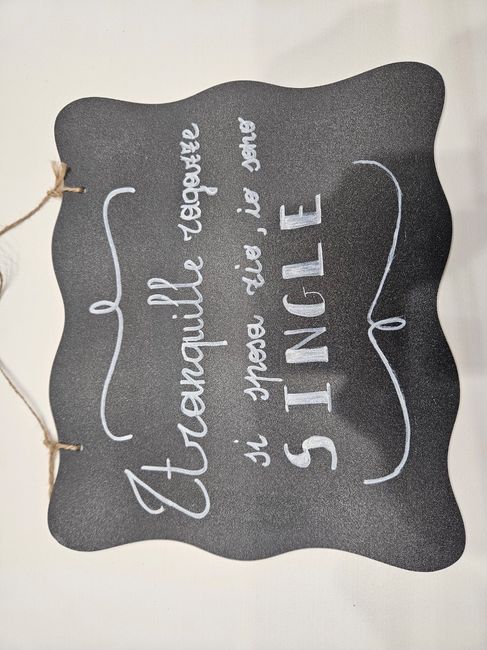 Tranquille ragazze
si sposa zio, io sono
SINGLE